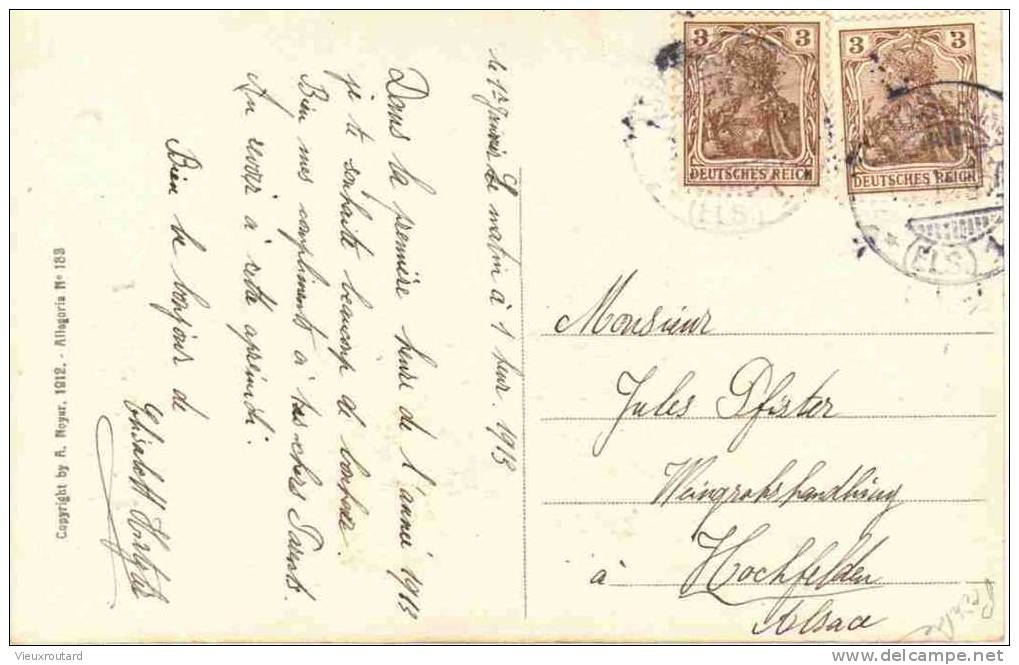 le 1er Janvier le matin à 1 heur. 1913
Dans la première heure de l'année 1913
je te souhaite beaucoup de bonheur.
Bien mes compliments à tes chers Parents.
Au revoir à cette après-midi.
Bien le bonjour de
Copyright by A. Noyer, 1912. - Allegorie N° 183
3 3
DEUTSCHES REICH
3 3
DEUTSCHES REICH
(ELS.)
* (ELS) 1
Monsieur
Jules Pfister
Weingrosshandlung
à Hochfelden
Alsace
Vieuxroutard
www.delcampe.net